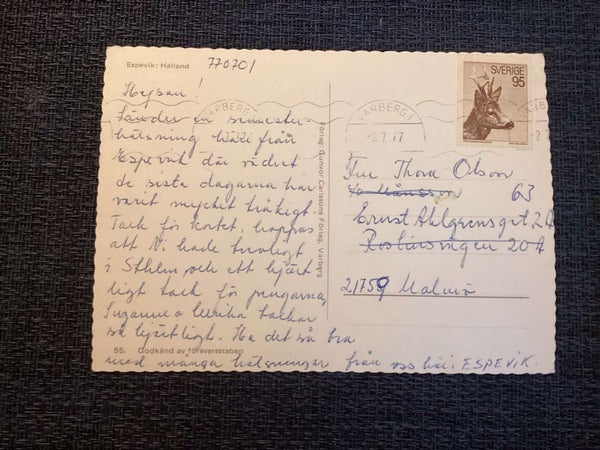 Espevik: Halland
770701
Hejsan!
Sänder en semester-
hälsning här från
Espevik där vädret
de sista dagarna har
varit mycket tråkigt.
Tack för kortet, hoppas
att Ni hade trevligt
i Sthlm, och ett hjärt
ligt tack för pengarna,
Suzanne o Ulrika tackar
så hjärtligt. Ha det så bra
med många hälsningar från oss här i ESPEVIK.
55. Godkänd av försvarsstaben
Förlag: Gunvor Carlssons Förlag, Varberg
VARBERG 1
-2.7.77
SVERIGE
95
Fru Thora Olson
63
Ernst Ahlgrensgt 2A
20A
21759 Malmö